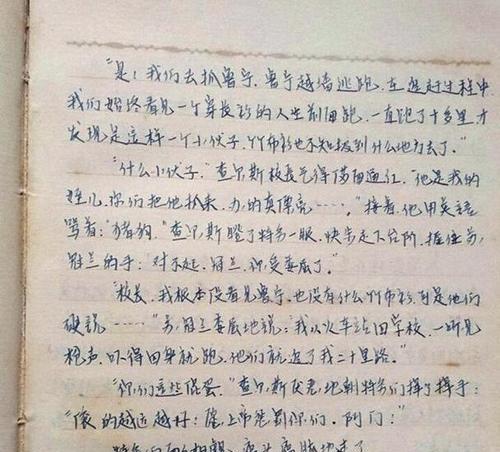 "是！我们去抓鲁宁，鲁宁越墙逃跑，在追赶过程中
我们始终看见一个穿长衫的人在前面跑，一直跑了十多里才
发现是这样一个小伙子，竹布衫也不知扔到什么地方去了。"
"什么小伙子，"查尔斯校长气得满面通红，"他是我的
你们把他抓来，办的真漂亮……，"接着，他用英语
骂着："猪狗，"查尔斯瞪了特务一眼，快步走下台阶，握住
冠兰的手：对不起，冠兰，你受委屈了。"
"校长，我根本没看见鲁宁，也没有什么竹布衫，可是他们
硬说……"冠兰委屈地说：我从火车站回学校，一听见
枪声，吓得回身就跑，他们就追了我二十里路。"
"你们这些混蛋，"查尔斯地朝特务们挥了挥手：
"滚的越远越好！上帝惩罚你们，阿门！"